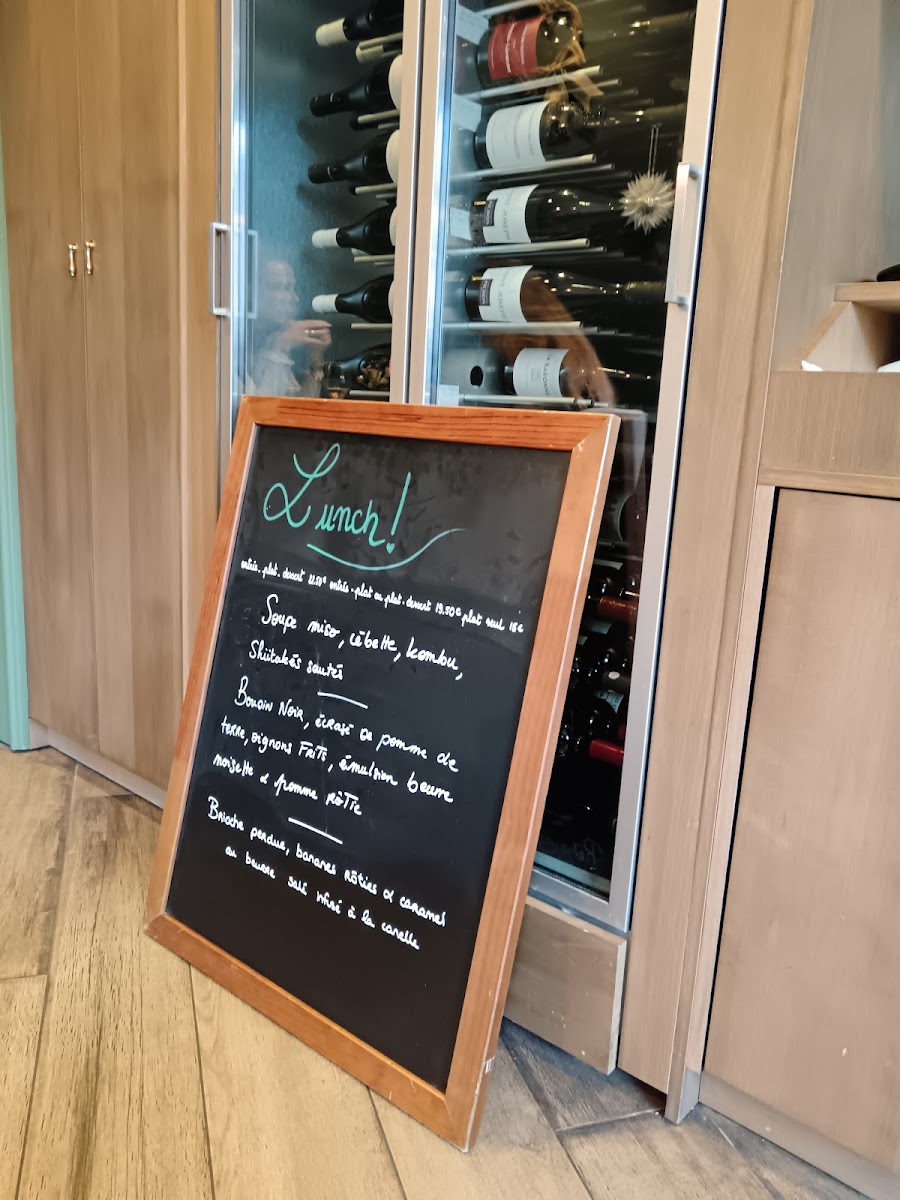 Lunch!
entrée. plat. dessert 22.50€ entrée - plat ou plat. dessert 19.50€ plat seul 15€
Soupe miso, cébette, kombu,
Shiitakés sautés
Boudin Noir, écrasé de pomme de
terre, oignons Frits, émulsion beurre
noisette & pomme rôtie
Brioche perdue, bananes rôties & caramel
au beurre salé infusé à la canelle